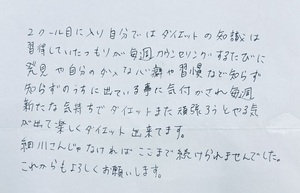 2クール目に入り自分ではダイエットの知識は
習得していたつもりが毎週カウンセリングするたびに
発見や自分のダメな心癖や習慣など知らず
知らずのうちに出ている事に気付かされ毎週
新たな気持ちでダイエットまた頑張ろうとやる気
が出て楽しくダイエット出来てます。
細川さんじゃなければここまで続けられませんでした。
これからもよろしくお願いします。